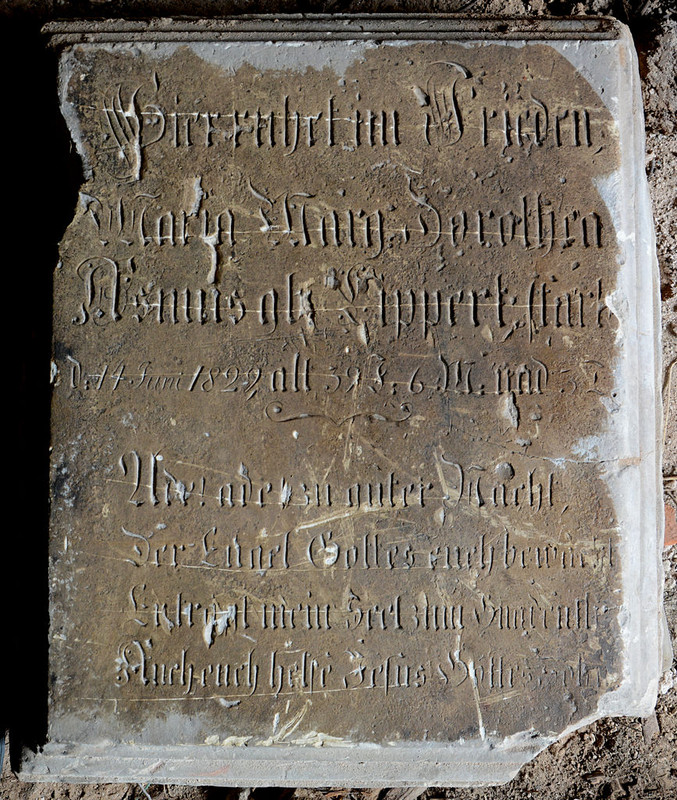 Hier ruhet im Frieden,
Maria Marg. Dorothea
Asmus geb. Lippert, starb
d. 14 Juni 1822, alt 39 J. 6 M. und 3 T
Ade! ade! zu guter Nacht,
Der Engel Gottes euch bewacht
Er trägt mein Seel zum
Auch euch helfe Jesus Gottes Sohn